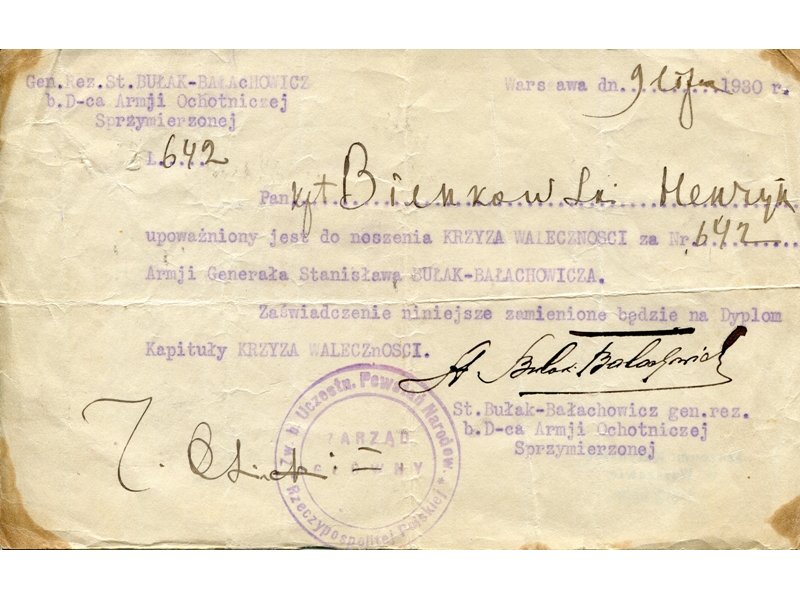 Gen.Rez.St.BUŁAK-BAŁAcHOWICZ
b.D-ca Armji Ochotniczej
Sprzymierzonej
Warszawa dn. 9 1930 r.
L. 642
Pan kpt Bieńkowski Henryk
upoważniony jest do noszenia KRZYZA WALECZNOSCI za Nr. 642
Armji Generała Stanisława BUŁAK-BAŁACHOWICZA.
Zaświadczenie niniejsze zamienione będzie na Dyplom
Kapituły KRZYZA WALECZnOSCI.
St Bułak-Bałachowicz
St.Bułak-Bałachowicz gen.rez.
b.D-ca Armji Ochotniczej
Sprzymierzonej
Zw. b. Uczestn. Powstań Narodow.
ZARZĄD
GŁÓWNY
Rzeczypospolitej Polskiej